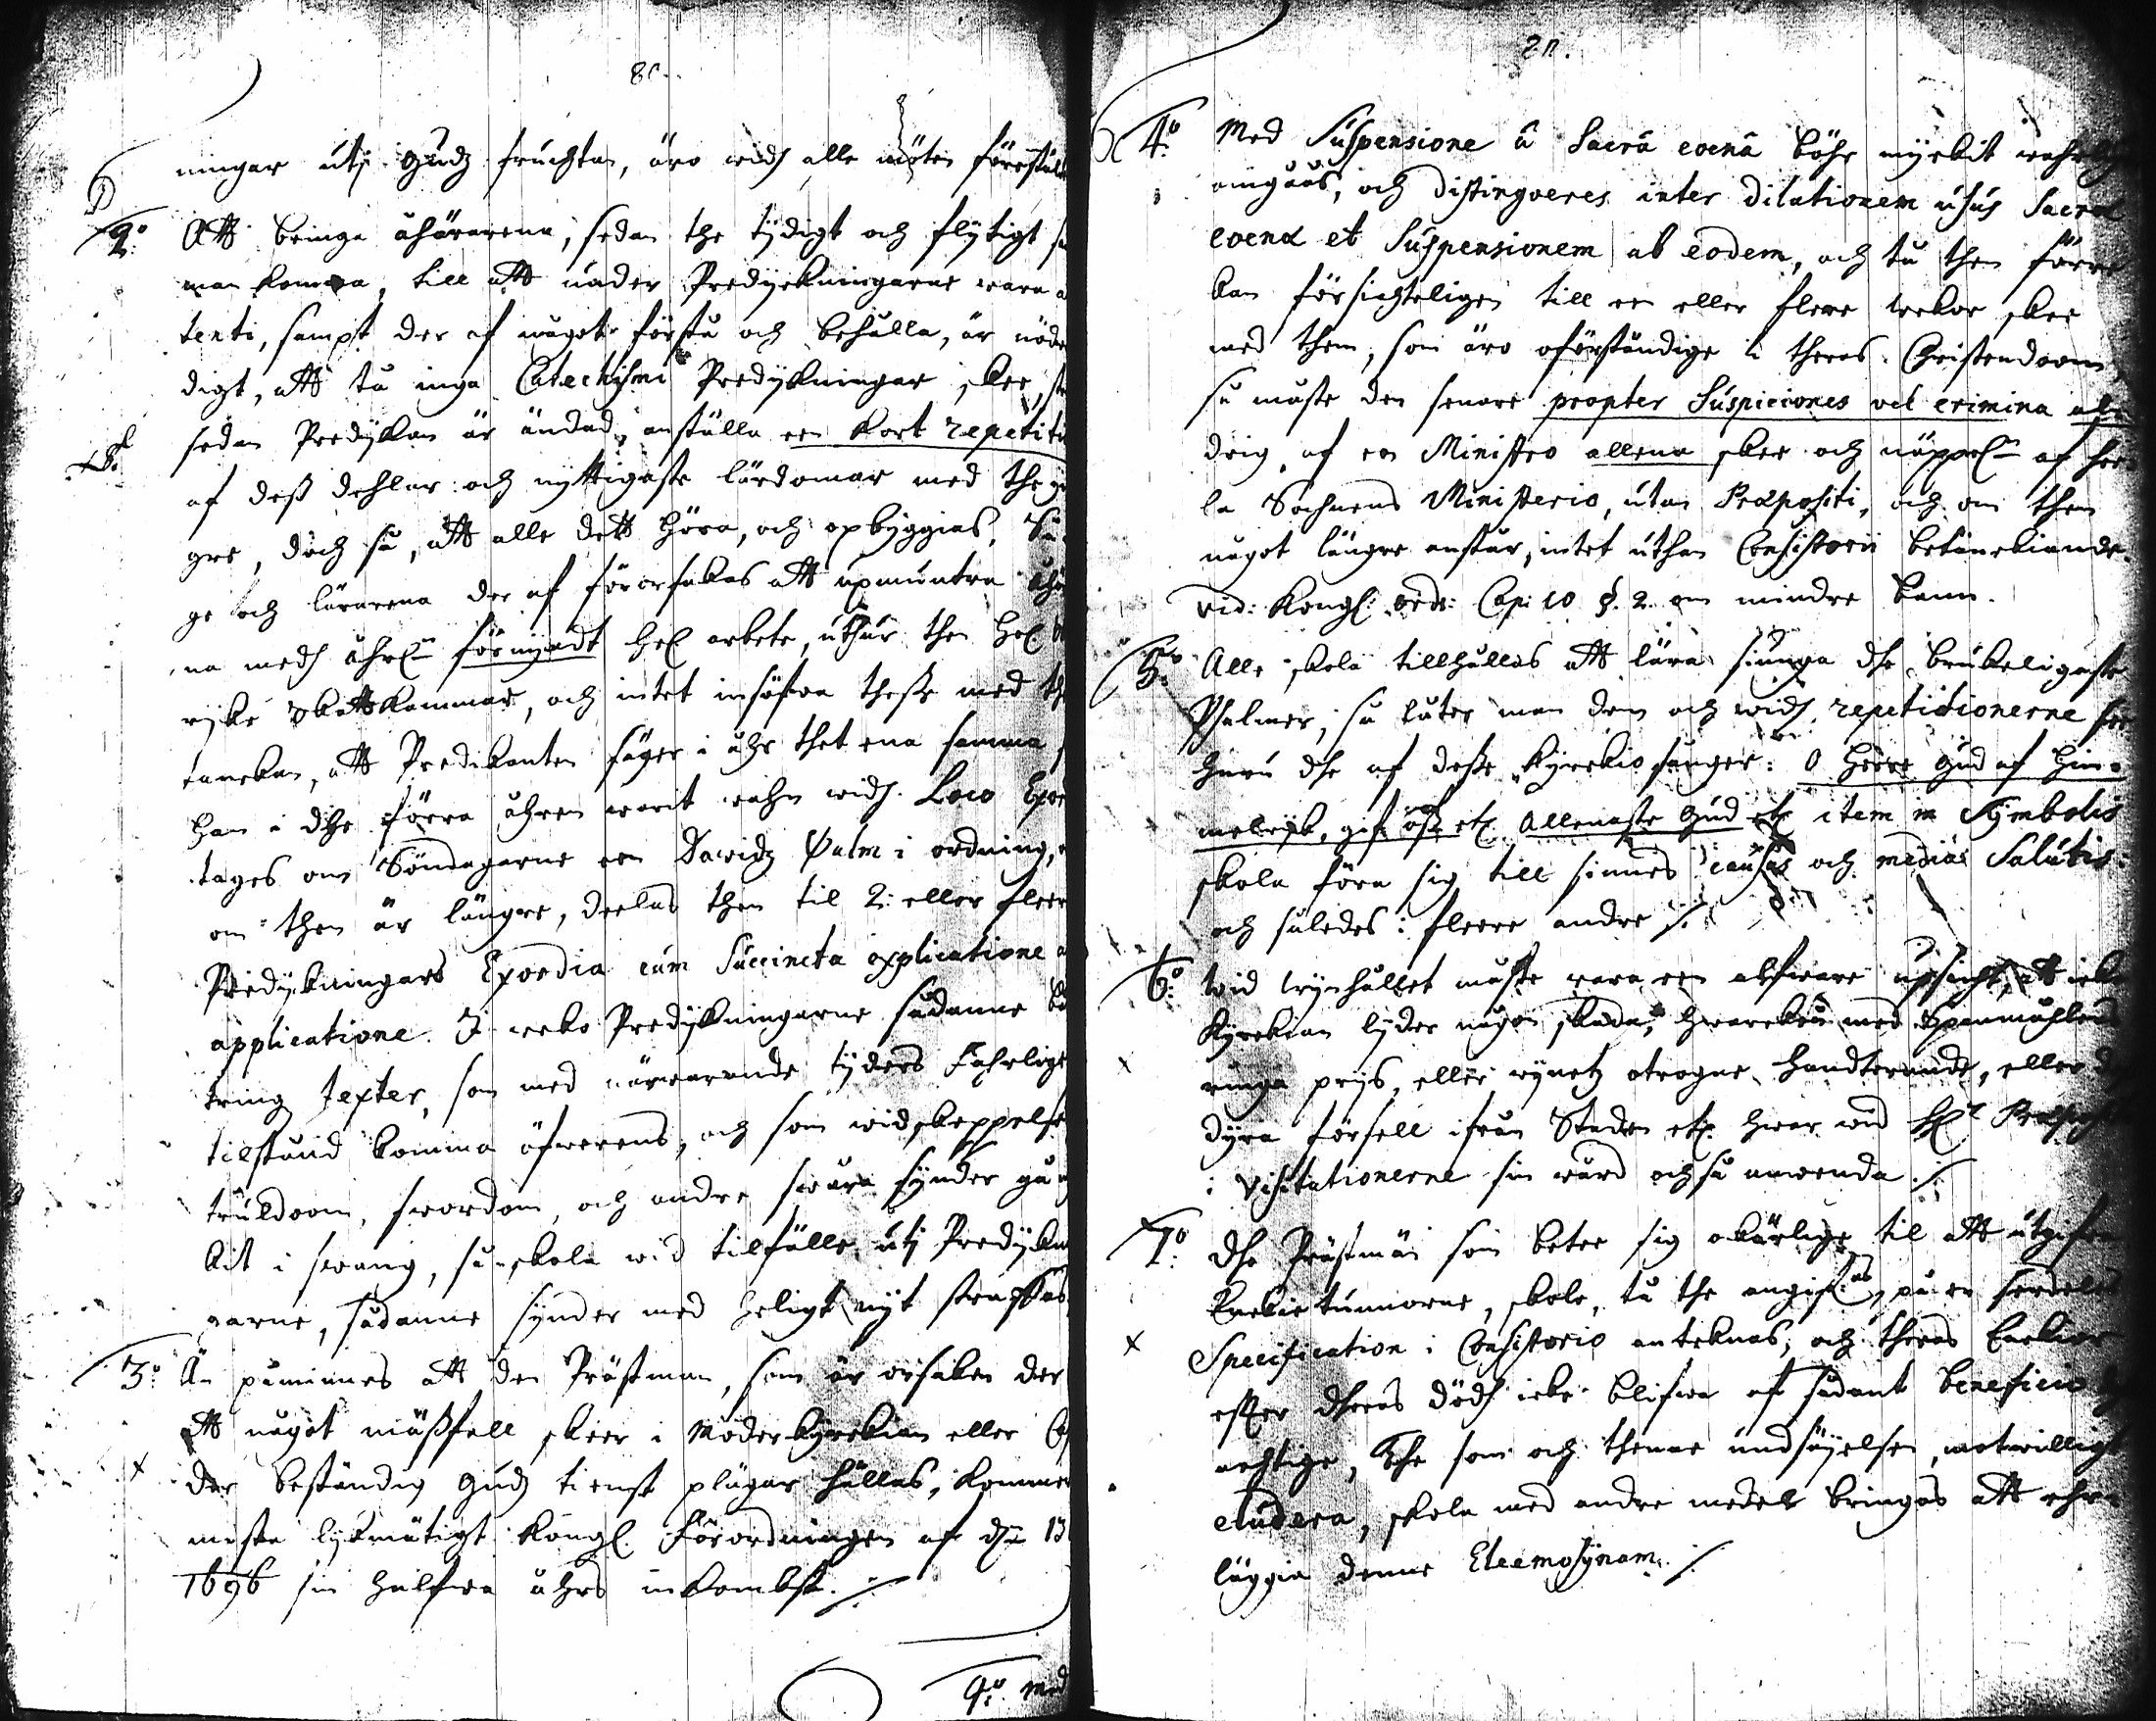 ningar utj Gudz fruchtan, äro widh alle möten förestäl
2:o Att bringa åhörarena, sedan the tydigt och flytigt
man komma, till att under Predyckningarne wara a
tenti, sampt der af något förstå och behålla, är nöde
digt, att tå inga Catechismi Predykningar skee,
sedan Predykan är ändad, anställa een kort repetiti
af dess dehlar och nyttigaste lärdomar med the yn
gre, doch så, att alle dett höra, och opbyggias, Så
ge och lärarena der af förorsakas att upmuntra åhö
na medh åhrl: förnyadt hel arbete, uthur then hel.
ryke skattkammar, och intet insöfwa thesse med
tanckan, att Predikanten säger i åhr thet ena samma
han i dhe förra åhren warit wahn widh. Loco Exor
tages om Söndagarne een Dawidz Psalm i ordning,
om then är längre, deelas then til 2: eller fleer
Predykningars Exordia cum Succincta explicatione
applicatione. I weko Predykningarne sådanne
tring texter, som med närwarande tyders Fahrlige
tilstånd komma öfwerens, och som widskeppelse
trulldoom, swordom, och andre swåra synder gå
kit i swang, så skola wid tilfälle utj Predykn
garne, sådanne synder med heligt nijt straffas
3:o Än påminnes att den Prästman, som är orsaken der
Att något mässfall skeer i Moderkyrckian eller
der beständig Gudz tienst plägar hållas, kommer
mista lykmätigt Kongl. Förordningen af d: 13
1696 sin halfwa åhrs inkombst. ./.
4:o Med
4:o Med Suspensione â Sacrâ coenâ böhr myckit wahrl
omgåås, och distingveres inter Dilationem usus Sacræ
coenæ et Suspensionem ab eodem, och tå then förre
kan försichteligen till een eller flere wekor skee
med them, som äro oförståndige i theras Christendoom,
så måste den senare propter Suspiciones vel crimina al
drig, af en Ministro allena skee och näppel: af hee
la Sochnens Ministerio, utan Præpositi, och om then
något längre anstår, intet uthan Consistorii betänckiande.
vid: Kongl: ordn: Cap: 10 §. 2. om mindre bann.
5:o Alle skola tillhållas att lära siunga dhe brukeligaste
Psalmer, så låter man dem och widh repetitionerne see
huru dhe af desse kyrckio sånger: O Herre Gud af him
melryk, gif oss etc. Allenaste Gud etc item in Symbolis
skola föra sig till sinnes causas och medias Salutis:
och således i fleere andre ./.
6:o Wid wynhållet måste wara een alfware upsicht, att icke
Kyrckian lyder någon skada, hwarcken med Spanmåhlens
ringa prys, eller wynetz otrogne handterande, eller
dyra försell ifrån Staden etc. hwar wid H:r Præposit
i Visitationerne sin wård och så anwenda ./.
7:o Dhe Prästmän som betee sig okärlige til att utgifwa
Enckie tunnorne, skole, tå the angifwas, på en serdeles
Specification i Consistorio antecknas, och theras Enckior
efter dheras dödh icke blifwa af sådant beneficio
achtige, The som och thenne undsäyelsen motwilligt
eludera, skola med andre medel bringas att ehr
läggia denne Eleemosynam. ./.